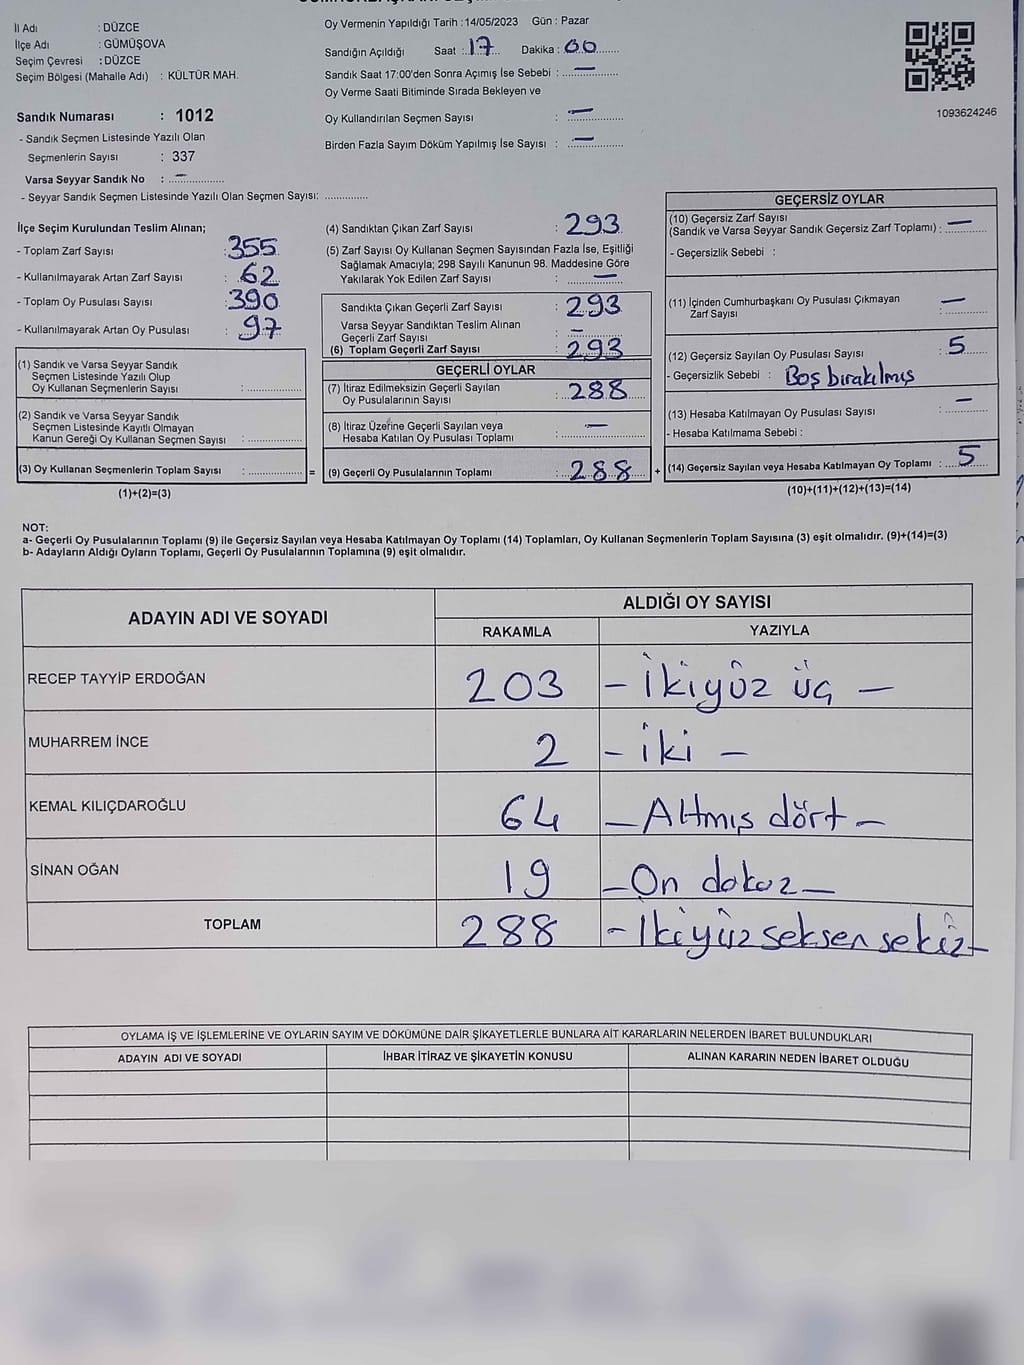 İl Adı : DÜZCE
İlçe Adı : GÜMÜŞOVA
Seçim Çevresi : DÜZCE
Seçim Bölgesi (Mahalle Adı) : KÜLTÜR MAH.
Sandık Numarası : 1012
- Sandık Seçmen Listesinde Yazılı Olan
Seçmenlerin Sayısı : 337
Varsa Seyyar Sandık No : –
- Seyyar Sandık Seçmen Listesinde Yazılı Olan Seçmen Sayısı: ..............
Oy Vermenin Yapıldığı Tarih : 14/05/2023 Gün : Pazar
Sandığın Açıldığı Saat : 17 Dakika : 00
Sandık Saat 17:00'den Sonra Açımış İse Sebebi : —
Oy Verme Saati Bitiminde Sırada Bekleyen ve
Oy Kullandırılan Seçmen Sayısı : —
Birden Fazla Sayım Döküm Yapılmış İse Sayısı : —
1093624246
İlçe Seçim Kurulundan Teslim Alınan;
- Toplam Zarf Sayısı : 355
- Kullanılmayarak Artan Zarf Sayısı : 62
- Toplam Oy Pusulası Sayısı : 390
- Kullanılmayarak Artan Oy Pusulası : 97
(1) Sandık ve Varsa Seyyar Sandık
Seçmen Listesinde Yazılı Olup
Oy Kullanan Seçmenlerin Sayısı : ..............
(2) Sandık ve Varsa Seyyar Sandık
Seçmen Listesinde Kayıtlı Olmayan
Kanun Gereği Oy Kullanan Seçmen Sayısı : ..............
(3) Oy Kullanan Seçmenlerin Toplam Sayısı : .............. =
(1)+(2)=(3)
(4) Sandıktan Çıkan Zarf Sayısı : 293
(5) Zarf Sayısı Oy Kullanan Seçmen Sayısından Fazla İse, Eşitliği
Sağlamak Amacıyla; 298 Sayılı Kanunun 98. Maddesine Göre
Yakılarak Yok Edilen Zarf Sayısı : —
Sandıkta Çıkan Geçerli Zarf Sayısı : 293
Varsa Seyyar Sandıktan Teslim Alınan
Geçerli Zarf Sayısı : –
(6) Toplam Geçerli Zarf Sayısı : 293
GEÇERLİ OYLAR
(7) İtiraz Edilmeksizin Geçerli Sayılan
Oy Pusulalarının Sayısı : 288
(8) İtiraz Üzerine Geçerli Sayılan veya
Hesaba Katılan Oy Pusulası Toplamı : —
(9) Geçerli Oy Pusulalarının Toplamı : 288 +
GEÇERSİZ OYLAR
(10) Geçersiz Zarf Sayısı
(Sandık ve Varsa Seyyar Sandık Geçersiz Zarf Toplamı) : —
- Geçersizlik Sebebi :
(11) İçinden Cumhurbaşkanı Oy Pusulası Çıkmayan
Zarf Sayısı —
(12) Geçersiz Sayılan Oy Pusulası Sayısı : 5
- Geçersizlik Sebebi : Boş bırakılmış
(13) Hesaba Katılmayan Oy Pusulası Sayısı : —
- Hesaba Katılmama Sebebi :
(14) Geçersiz Sayılan veya Hesaba Katılmayan Oy Toplamı : 5
(10)+(11)+(12)+(13)=(14)
NOT:
a- Geçerli Oy Pusulalarının Toplamı (9) ile Geçersiz Sayılan veya Hesaba Katılmayan Oy Toplamı (14) Toplamları, Oy Kullanan Seçmenlerin Toplam Sayısına (3) eşit olmalıdır. (9)+(14)=(3)
b- Adayların Aldığı Oyların Toplamı, Geçerli Oy Pusulalarının Toplamına (9) eşit olmalıdır.
ADAYIN ADI VE SOYADI ALDIĞI OY SAYISI
RAKAMLA YAZIYLA
RECEP TAYYİP ERDOĞAN 203 – İkiyüz üç –
MUHARREM İNCE 2 – iki –
KEMAL KILIÇDAROĞLU 64 – Altmış dört –
SİNAN OĞAN 19 – On dokuz –
TOPLAM 288 – İkiyüz seksen sekiz –
OYLAMA İŞ VE İŞLEMLERİNE VE OYLARIN SAYIM VE DÖKÜMÜNE DAİR ŞİKAYETLERLE BUNLARA AİT KARARLARIN NELERDEN İBARET BULUNDUKLARI
ADAYIN ADI VE SOYADI İHBAR İTİRAZ VE ŞİKAYETİN KONUSU ALINAN KARARIN NEDEN İBARET OLDUĞU